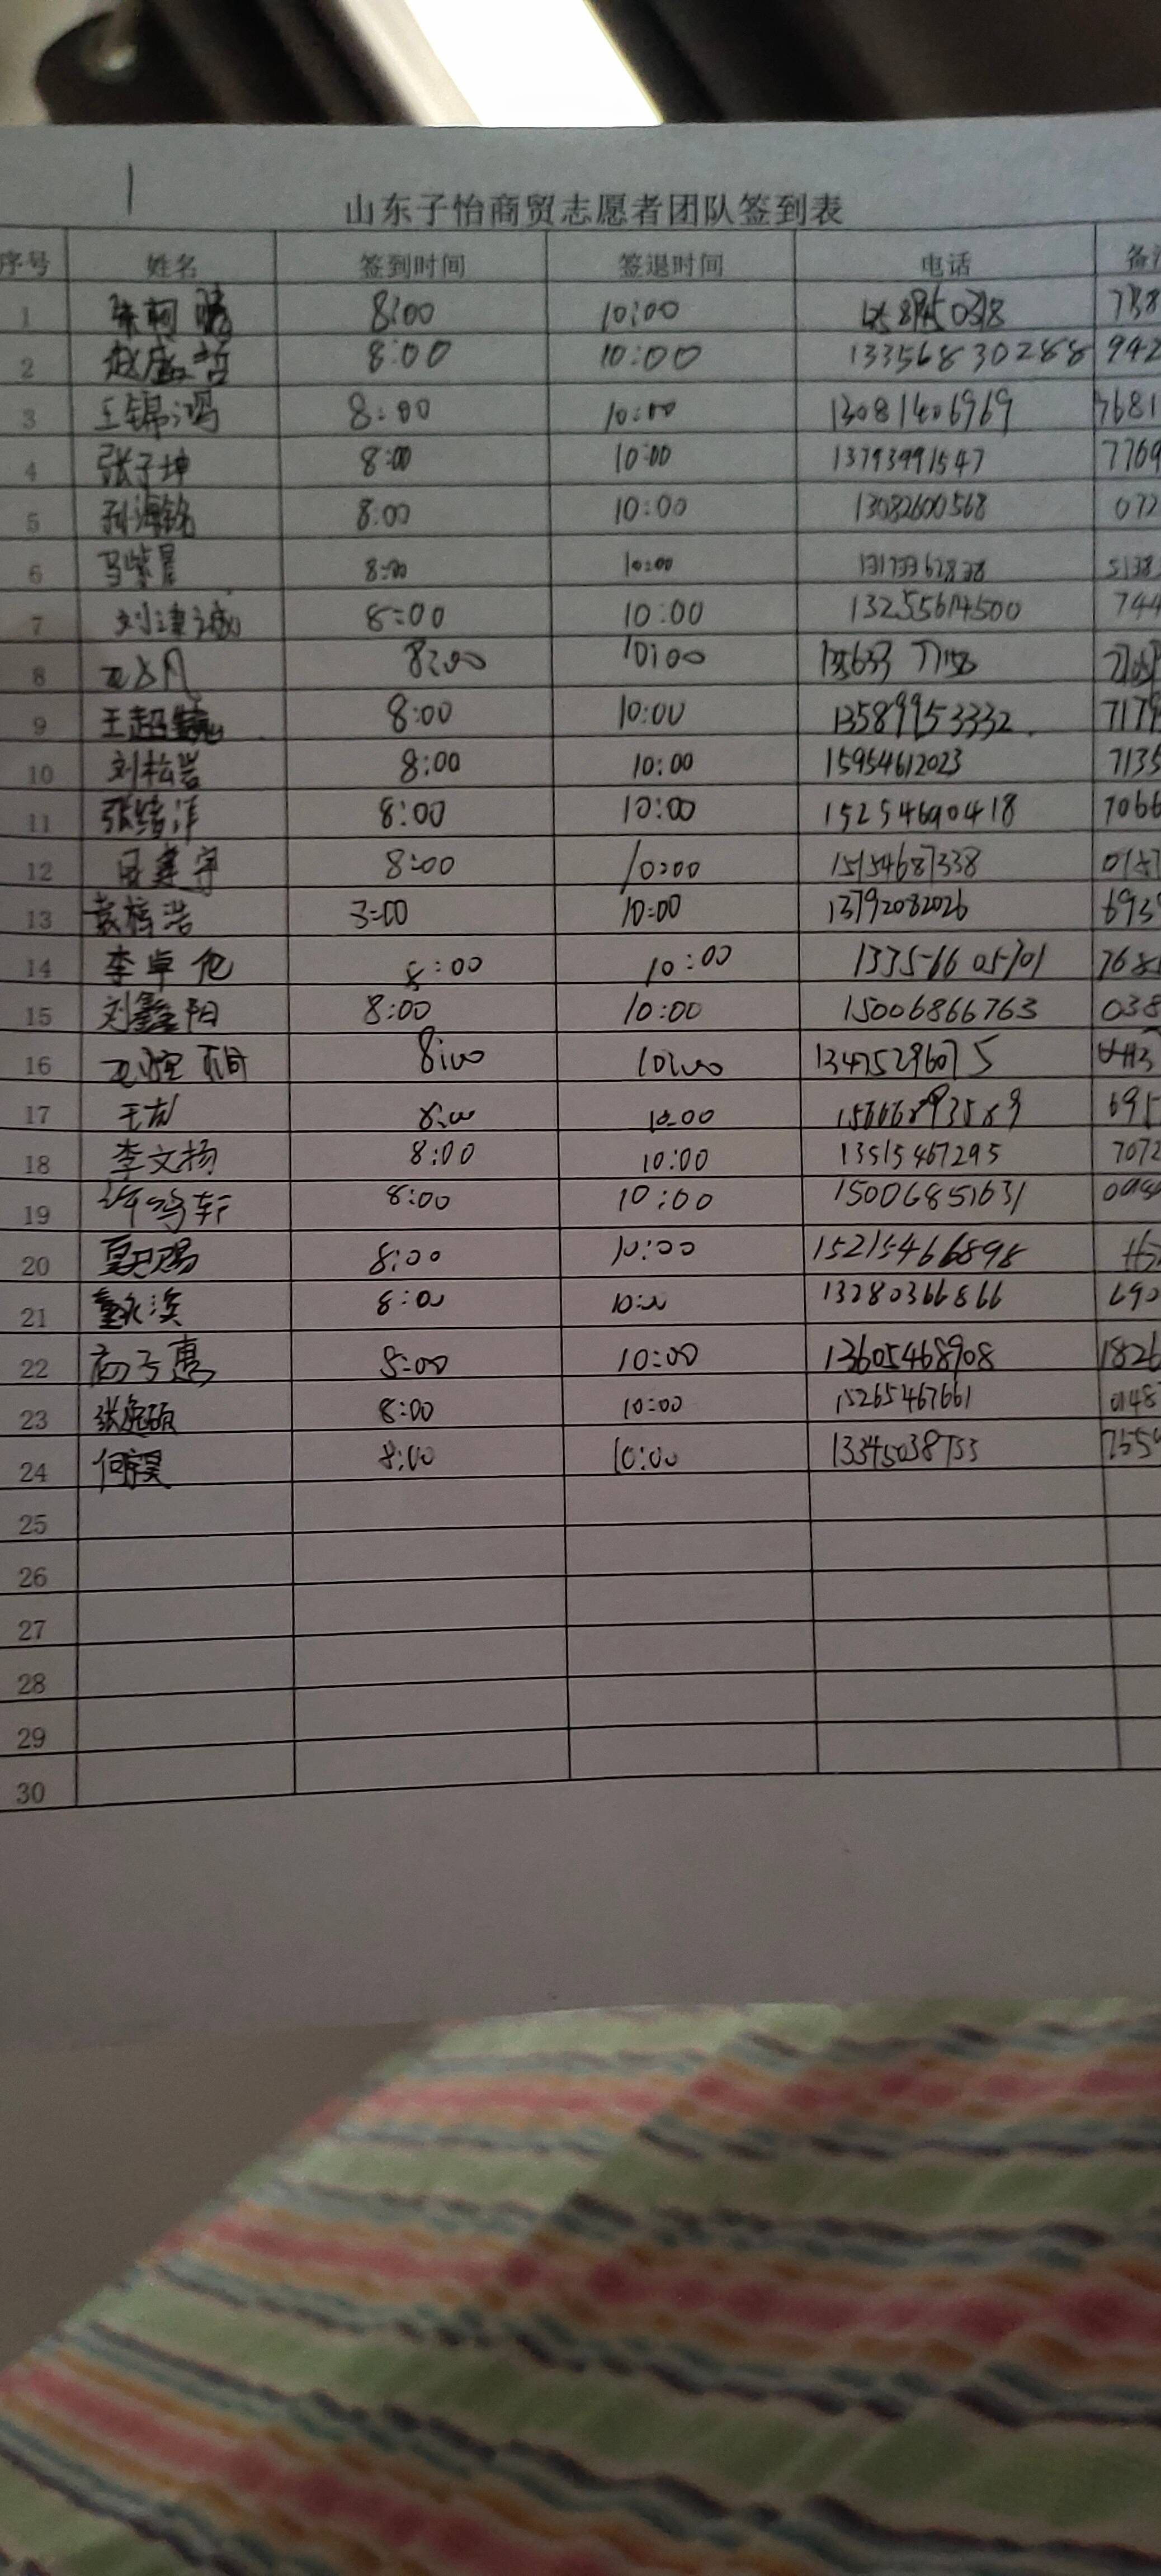 1
山东子怡商贸志愿者团队签到表
序号 姓名 签到时间 签退时间 电话 备
1 8:00 10:00 738
2 赵盛哲 8:00 10:00 13356830288 942
3 王锦鸿 8:00 10:00 13081406969 7681
4 张子坤 8:00 10:00 13793991547 7769
5 孙海铭 8:00 10:00 13082600568 072
6 马紫晨 8:00 10:00 5138
7 8:00 10:00 13255614500 744
8 8:00 10:00
9 王超 8:00 10:00 13589953332 7179
10 刘松岩 8:00 10:00 15954612023 7135
11 张绪洋 8:00 10:00 15254690418 7066
12 8:00 10:00 15154687338
13 袁梓浩 8:00 10:00 13792082026 693
14 李卓伦 8:00 10:00 13356605701 768
15 刘鑫阳 8:00 10:00 15006866763 038
16 8:00 10:00 13475296075
17 8:00 10:00 15666893589 695
18 李文扬 8:00 10:00 13515467295 7072
19 许鸿轩 8:00 10:00 15006851631
20 8:00 10:00 15215466898
21 董永滨 8:00 10:00 13280366866 690
22 高子惠 8:00 10:00 13605468908 1826
23 张逸硕 8:00 10:00 15265467661 0148
24 何宇昊 8:00 10:00 13345038753 755
25
26
27
28
29
30